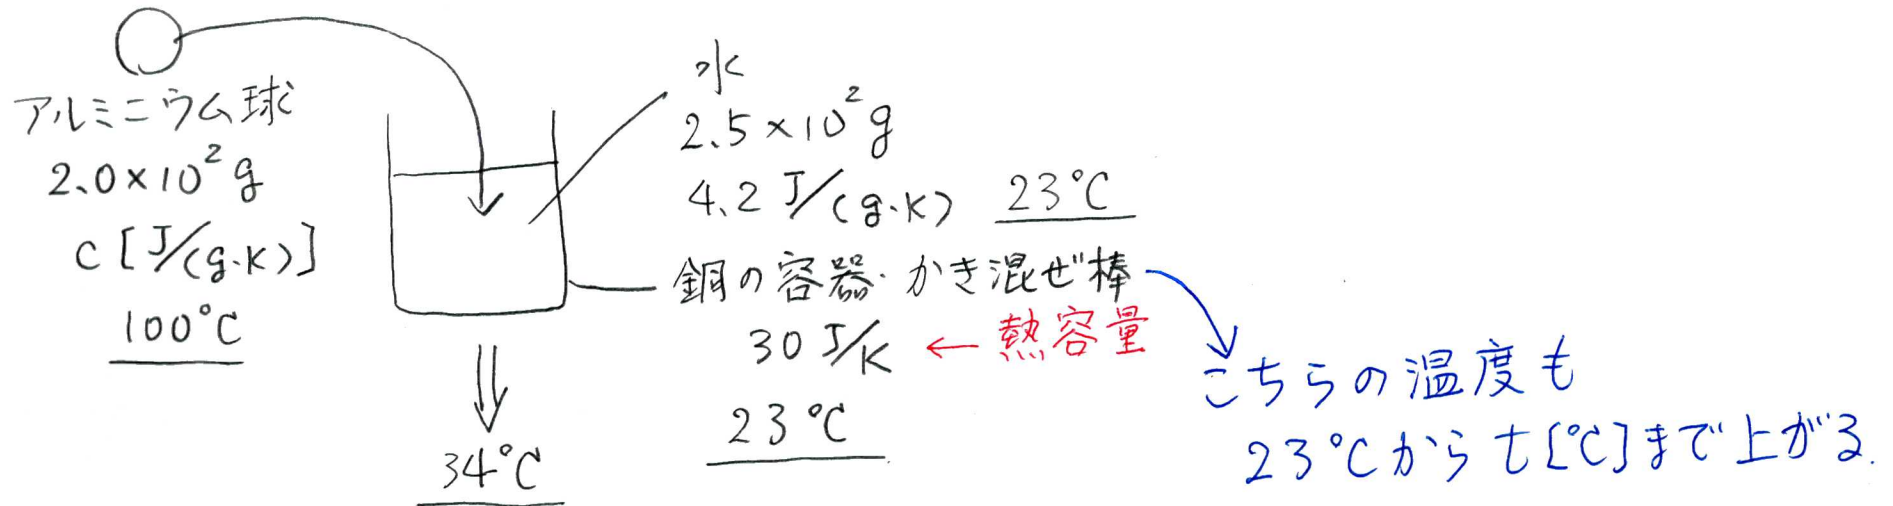 アルミニウム球
2.0×10² g
c [J/(g·K)]
100℃
34℃
水
2.5×10² g
4.2 J/(g·K) 23℃
銅の容器・かき混ぜ棒
30 J/K ← 熱容量
23℃
こちらの温度も
23℃からt[℃]まで上がる.